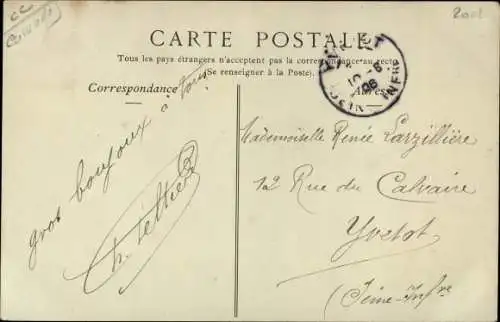 CARTE POSTALE
Tous les pays étrangers n'acceptent pas la correspondance au recto
(Se renseigner à la Poste).
Correspondance
gros boujoux à tous
Mademoiselle Renée Larzillière
12 Rue du Calvaire
Yvetot
(Seine-Infre